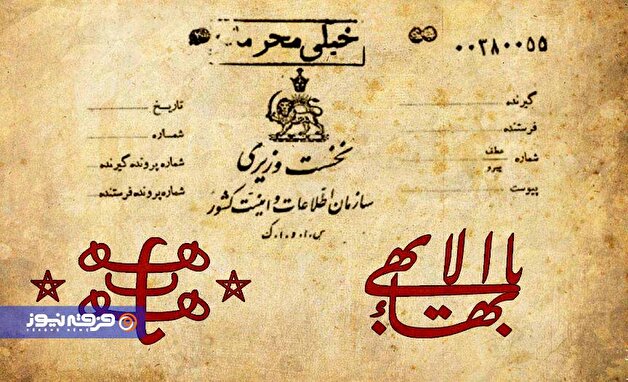 خیلی محرمانه
۰۰۳۸۰۰۵۵
گیرنده
فرستنده
شماره عطف
پیرو
پیوست
تاریخ
شماره
شماره پرونده گیرنده
شماره پرونده فرستنده
نخست وزیری
سازمان اطلاعات و امنیت کشور
س.ا.و.ا.ک
یا بهاء الابهی
فرقه نیوز